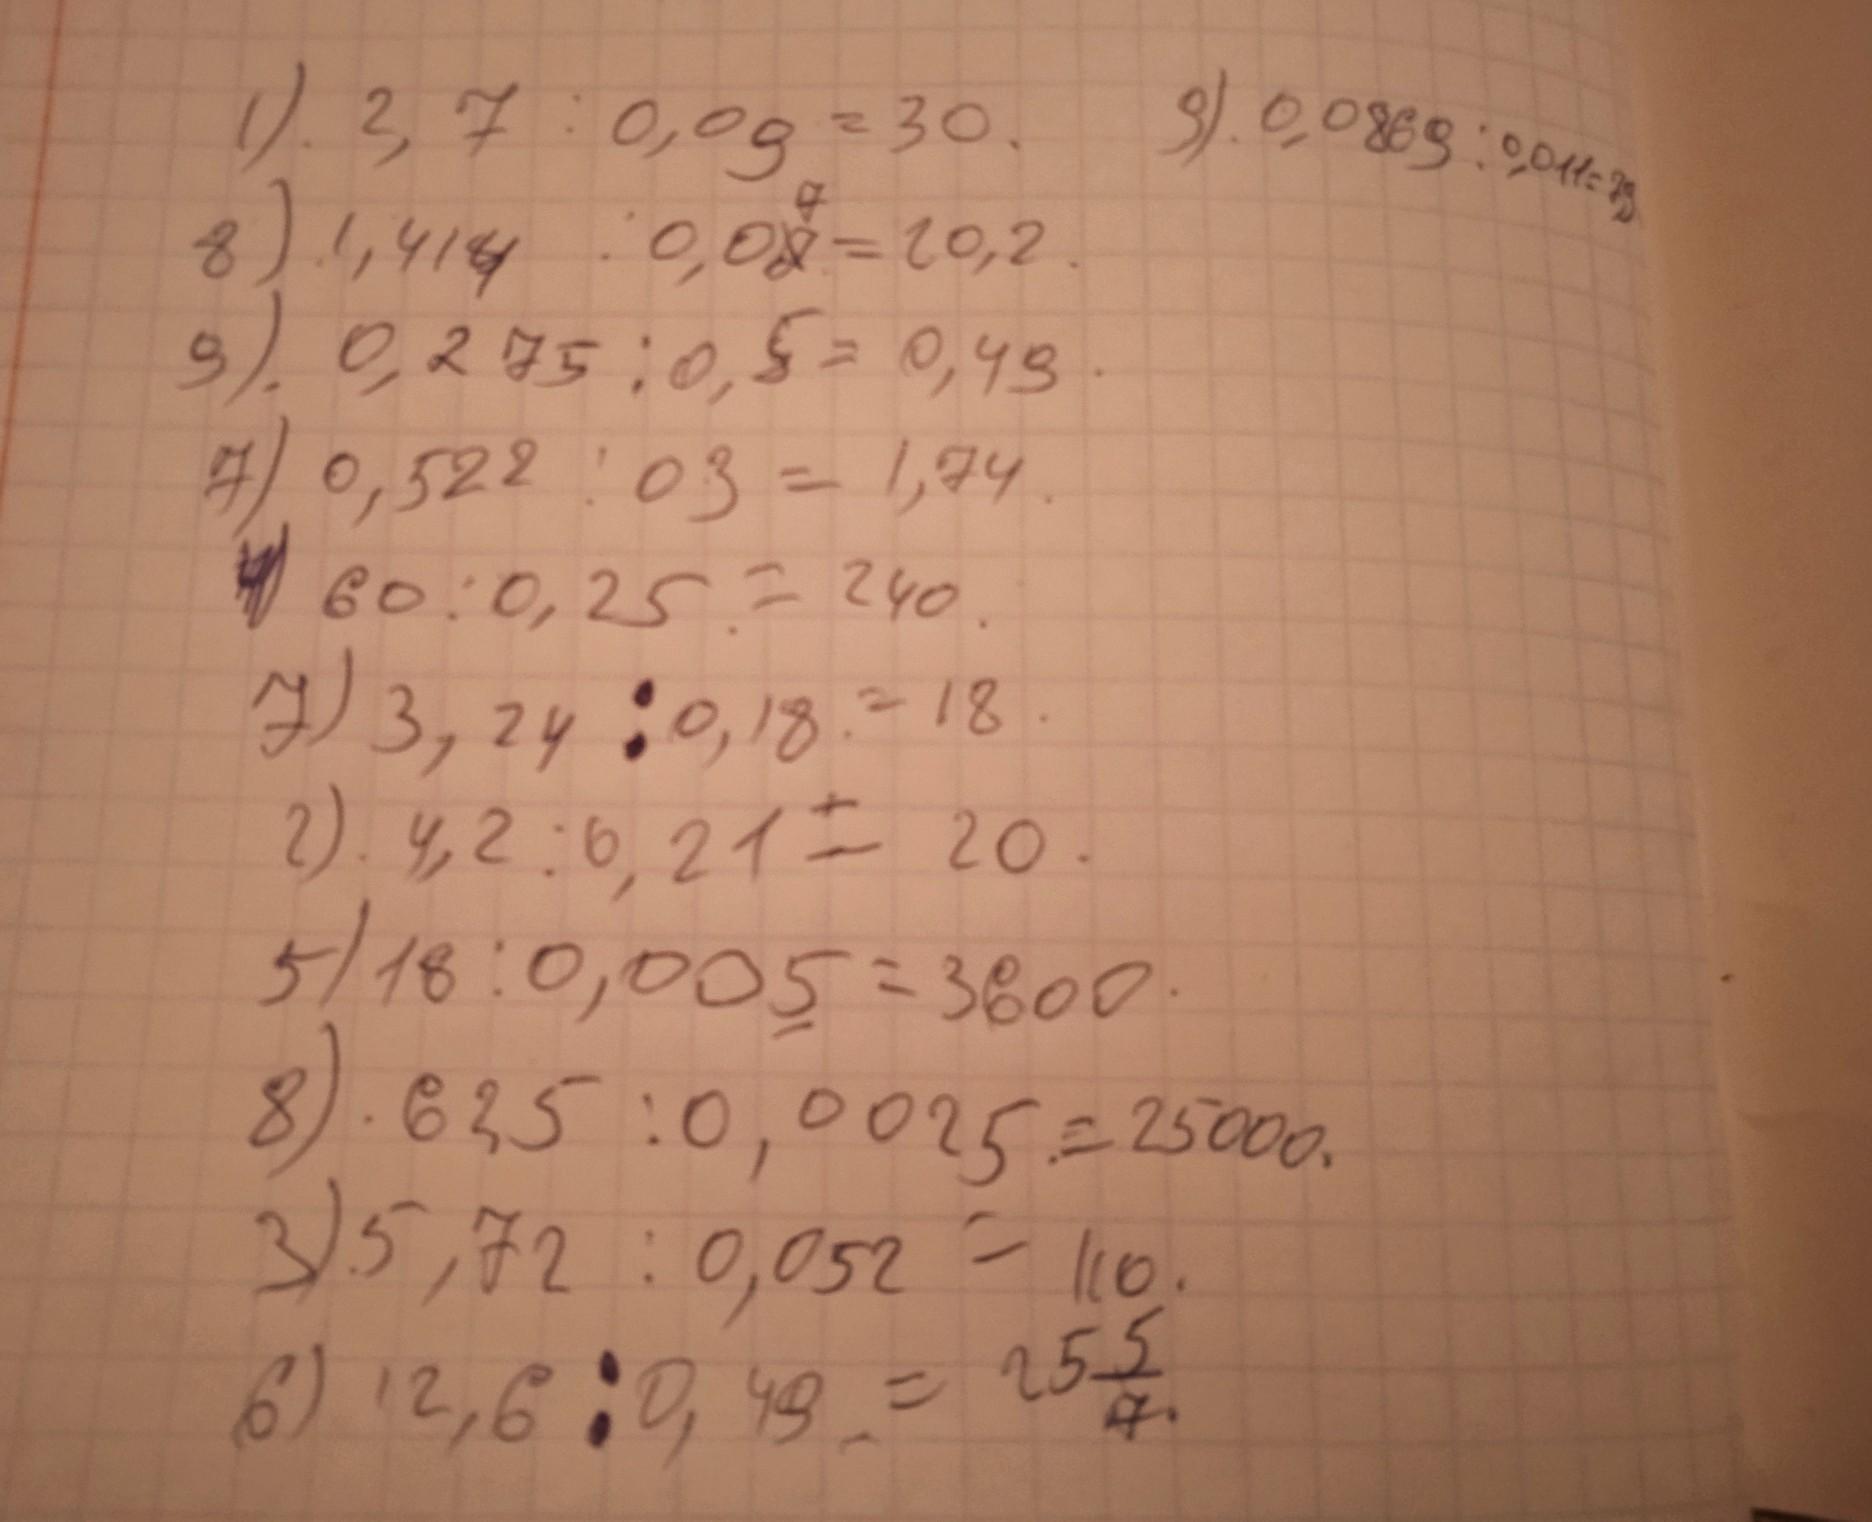 1). 2,7 : 0,09 = 30.
9). 0,0869 : 0,011 = 79
8) 1,414 : 0,07 = 20,2.
9). 0,275 : 0,5 = 0,49.
7) 0,522 : 03 = 1,74.
60 : 0,25 = 240.
7) 3,24 : 0,18 = 18.
2). 4,2 : 0,21 = 20.
5) 18 : 0,005 = 3600.
8). 62,5 : 0,0025 = 25000.
3) 5,72 : 0,052 = 110.
6) 12,6 : 0,49 = 25 5/7.